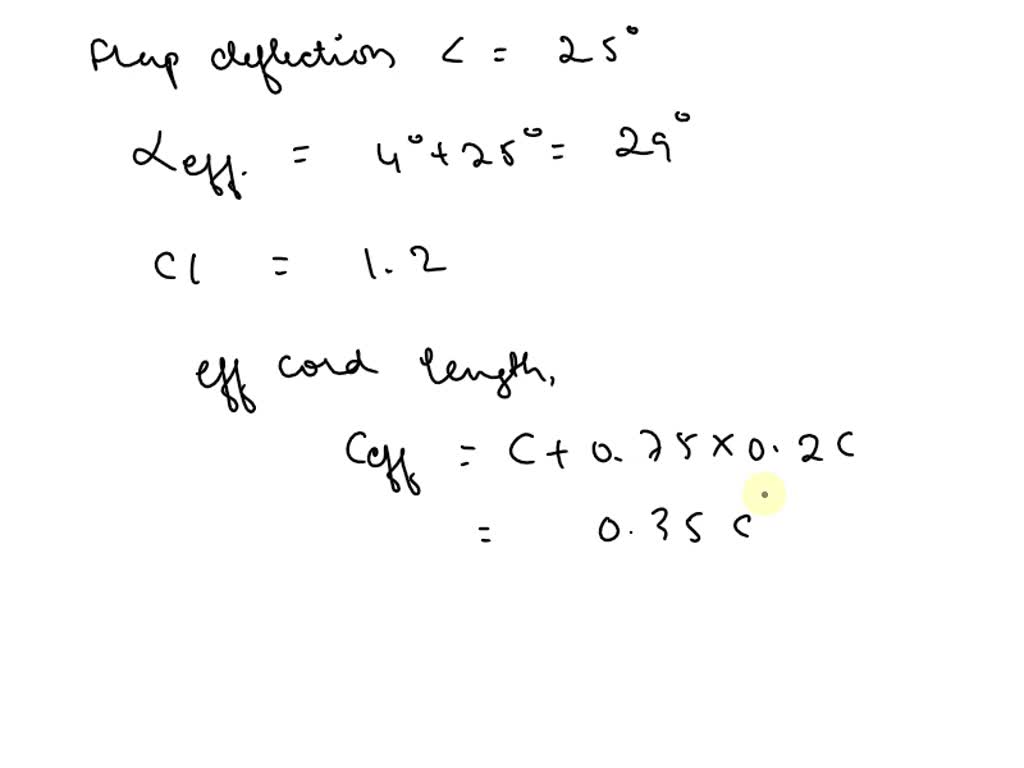 Flap deflection < = 25°
αeff. = 4° + 25° = 29°
Cl = 1.2
eff cord length,
Ceff = C + 0.75 × 0.2 C
= 0.35 C